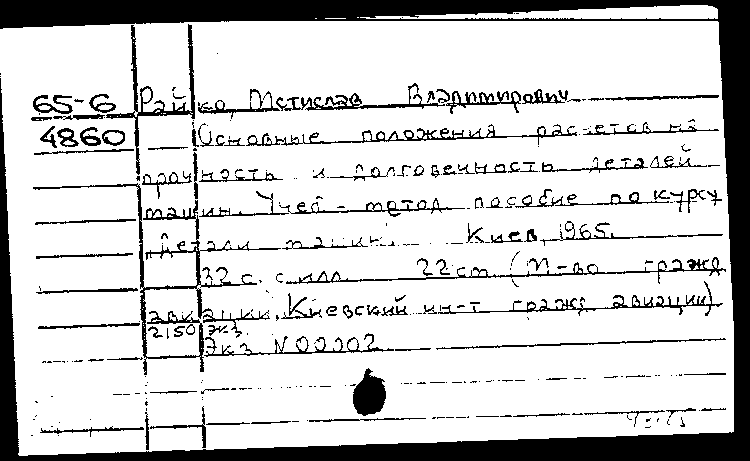 65-6 Райко, Мстислав Владимирович
4860 Основные положения расчетов на
прочность и долговечность деталей
машин. Учеб-метод. пособие по курсу
„Детали машин". Киев, 1965.
32 с. с илл. 22 cm (М-во гражд
авиации, Киевский ин-т гражд авиации)
2150 экз.
Экз. N 00002